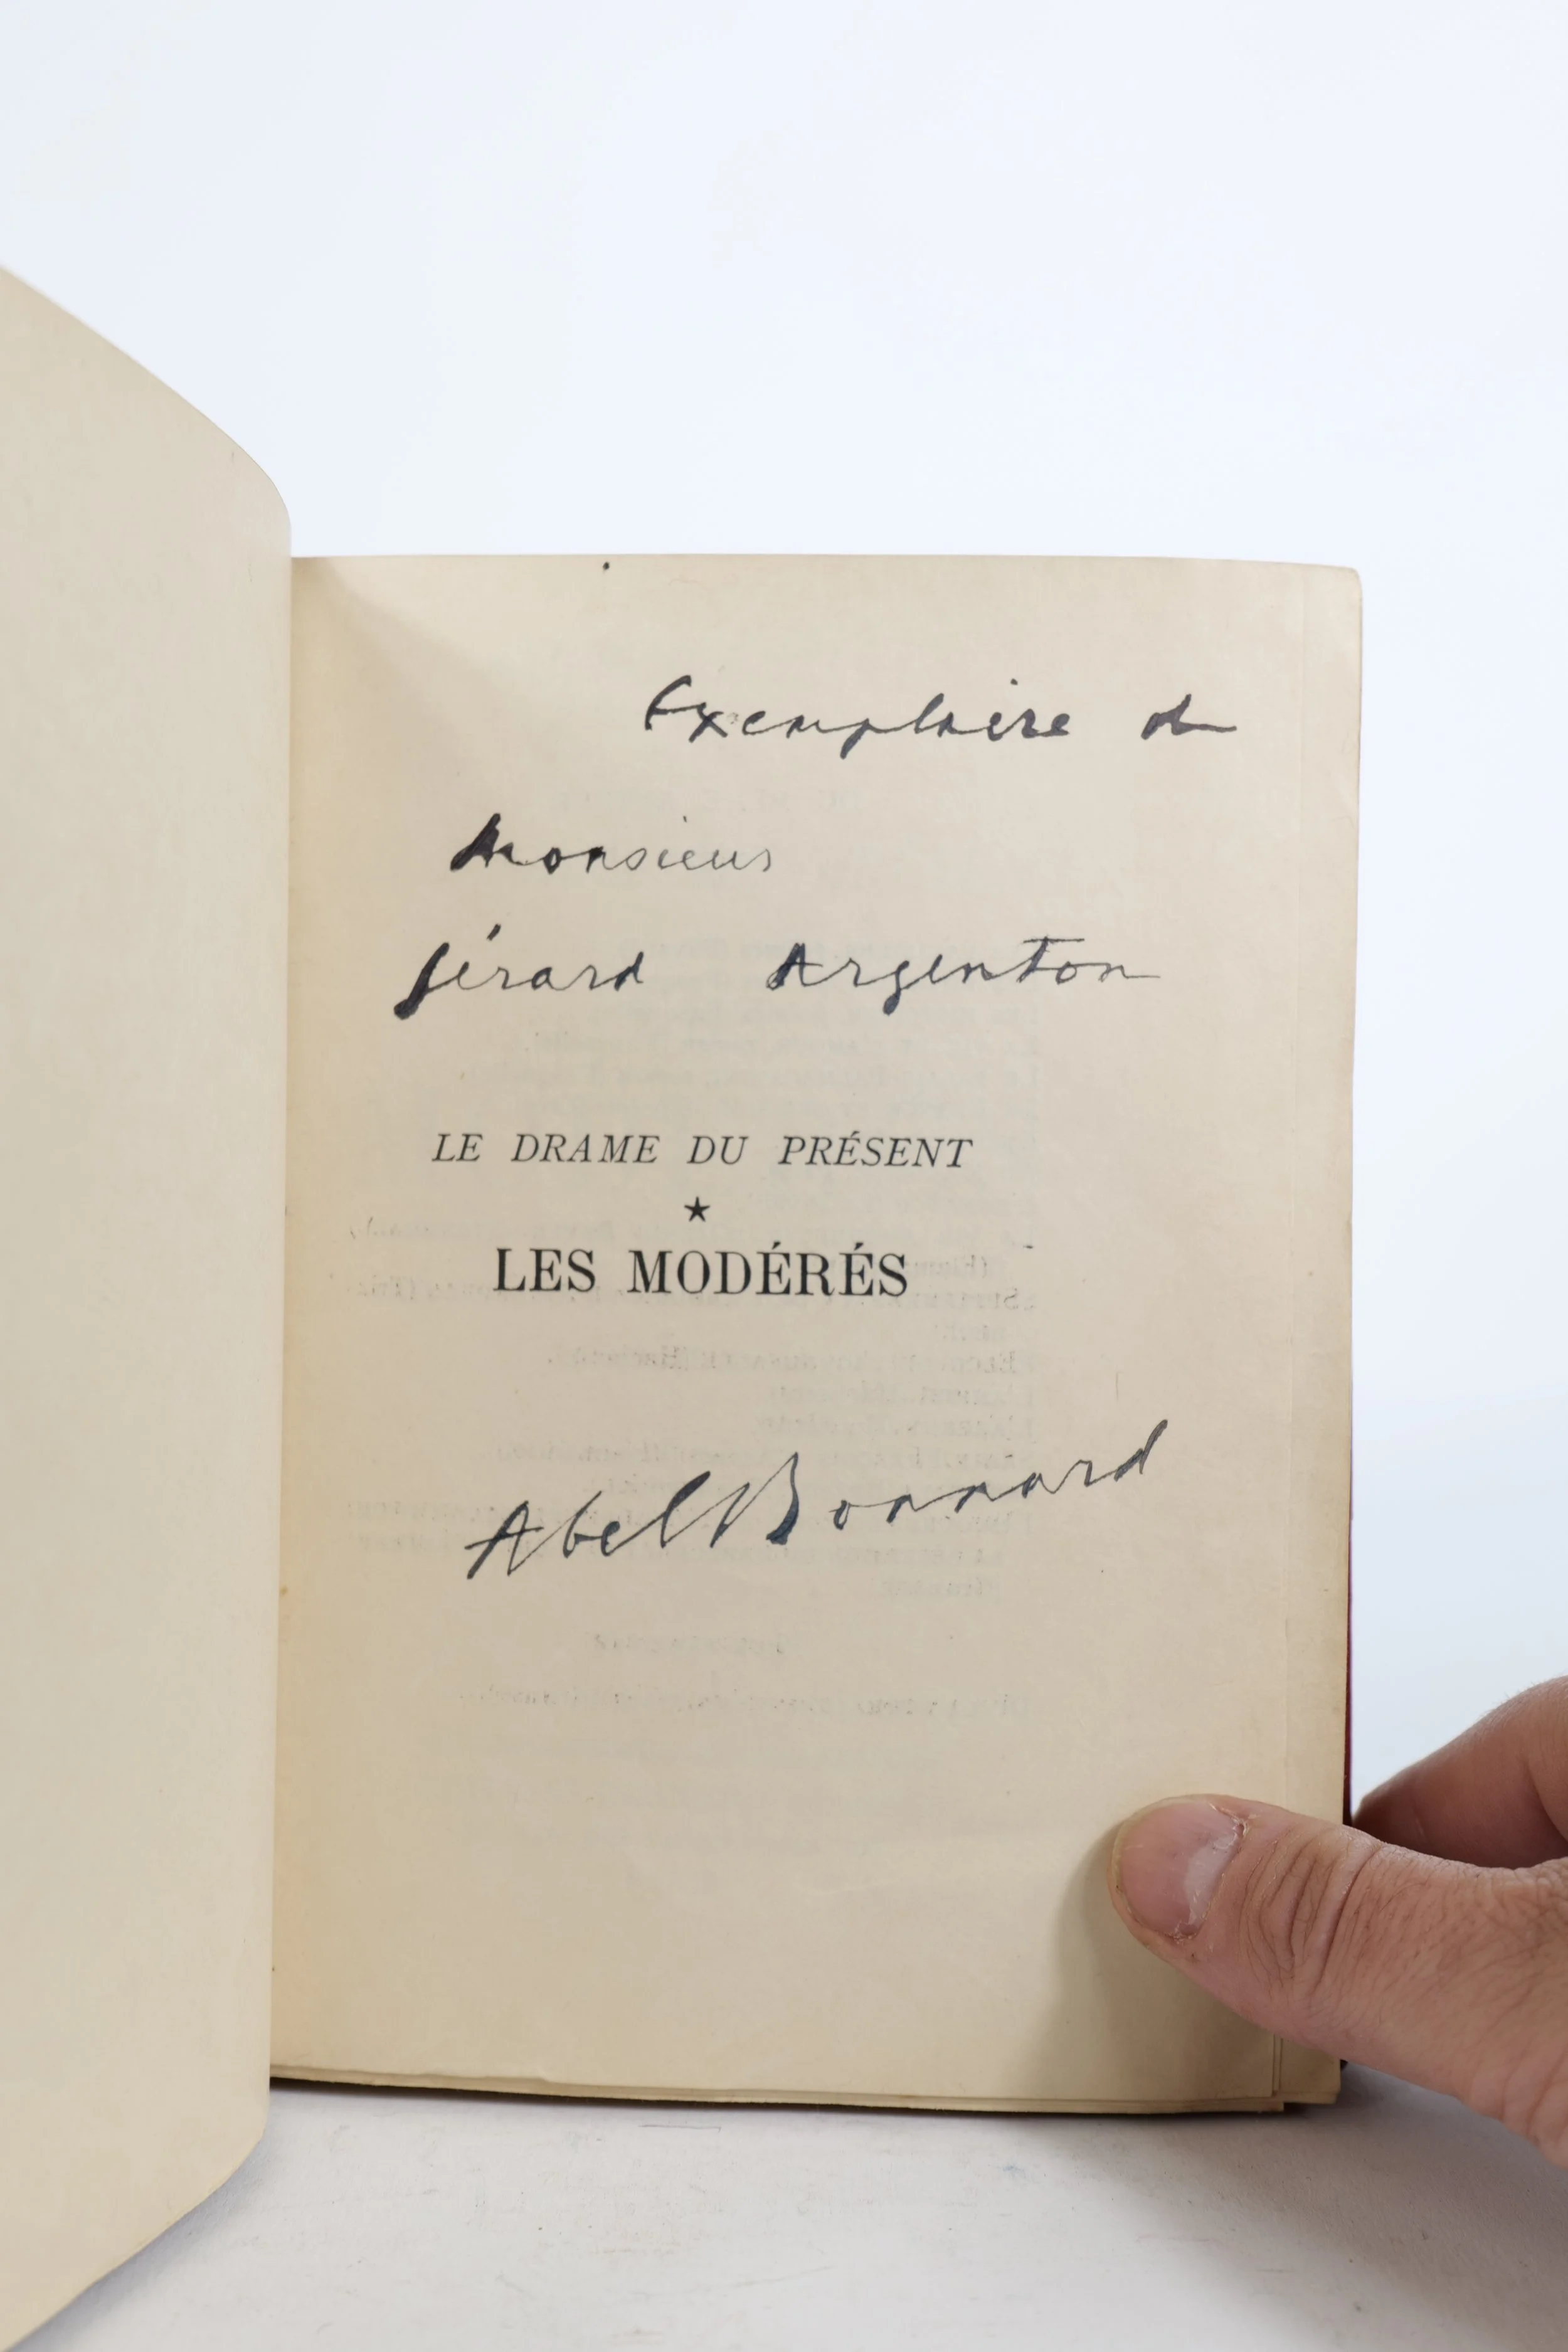 Exemplaire de
Monsieur
Gérard Argenton
LE DRAME DU PRÉSENT
★
LES MODÉRÉS
Abel Bonnard